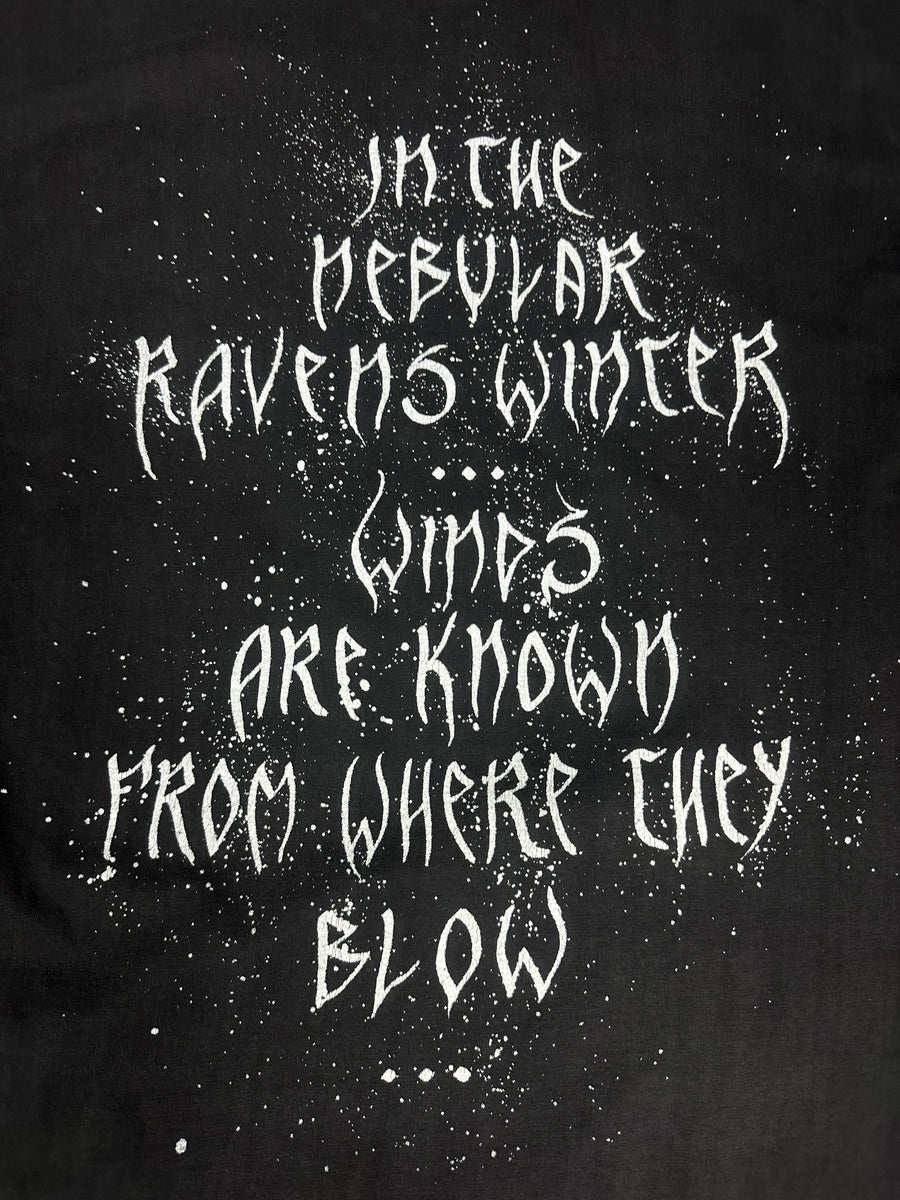 IN THE
NEBULAR
RAVENS WINTER
...
WINDS
ARE KNOWN
FROM WHERE THEY
BLOW
...